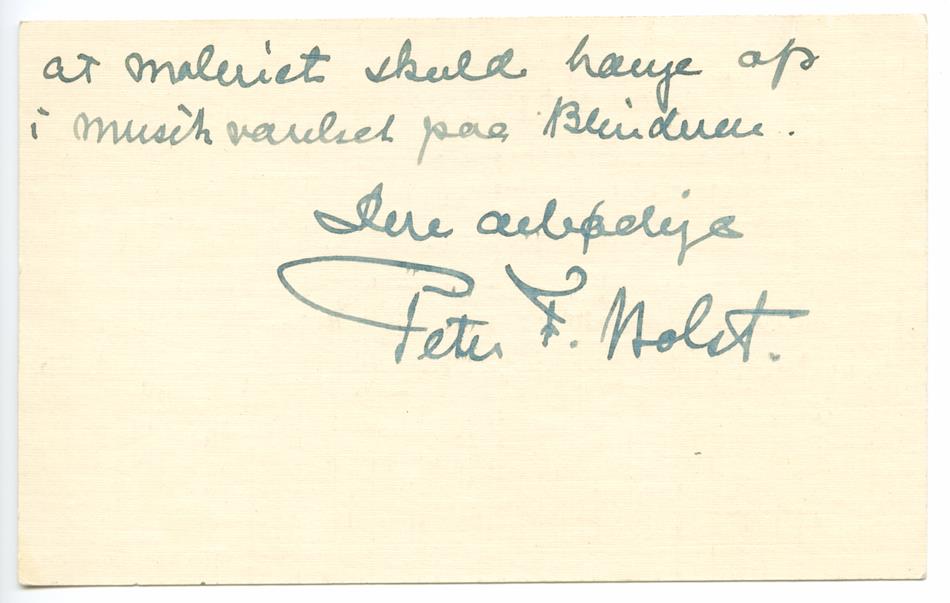 at maleriet skuld hænge op
i musik værelset paa Blindern.
Deres ærbødige
Peter F. Holst.